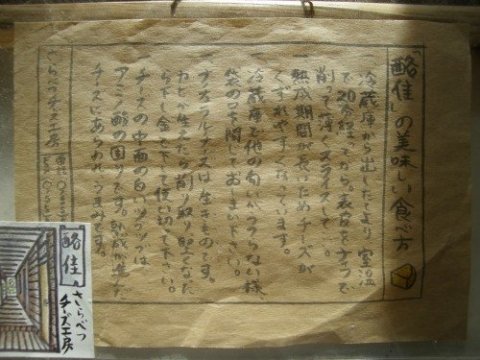 「酪佳」の美味しい食べ方
一冷蔵庫から出したより室温
で20分経ってから、表皮をナイフで
削って薄くスライスして
一熟成期間が長いためチーズが
くずれやすくなっています。
一冷蔵庫で他の匂いがうつらない様
袋の口を閉じておしまい下さい。
一ナチュラルチーズは生きものです。
カビが生えたら削り取り、堅くなった
らおろし金で下して使い切って下さい。
一チーズの中面の白いツブツブは
アミノ酸の固りです。熟成が進んだ
チーズにあらわれるうま味です。
さらべつチーズ工房
酪佳
さらべつ
チーズ工房